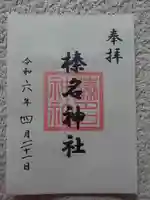 奉拝
榛名神社
令和六年四月二十一日